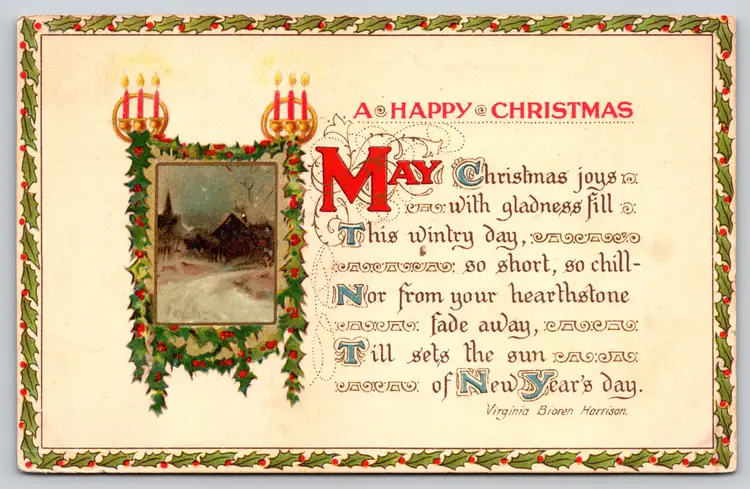 A HAPPY CHRISTMAS
MAY Christmas joys
with gladness fill
This wintry day,
so short, so chill-
Nor from your hearthstone
fade away,
Till sets the sun
of New Year's day.
Virginia Bioren Harrison.